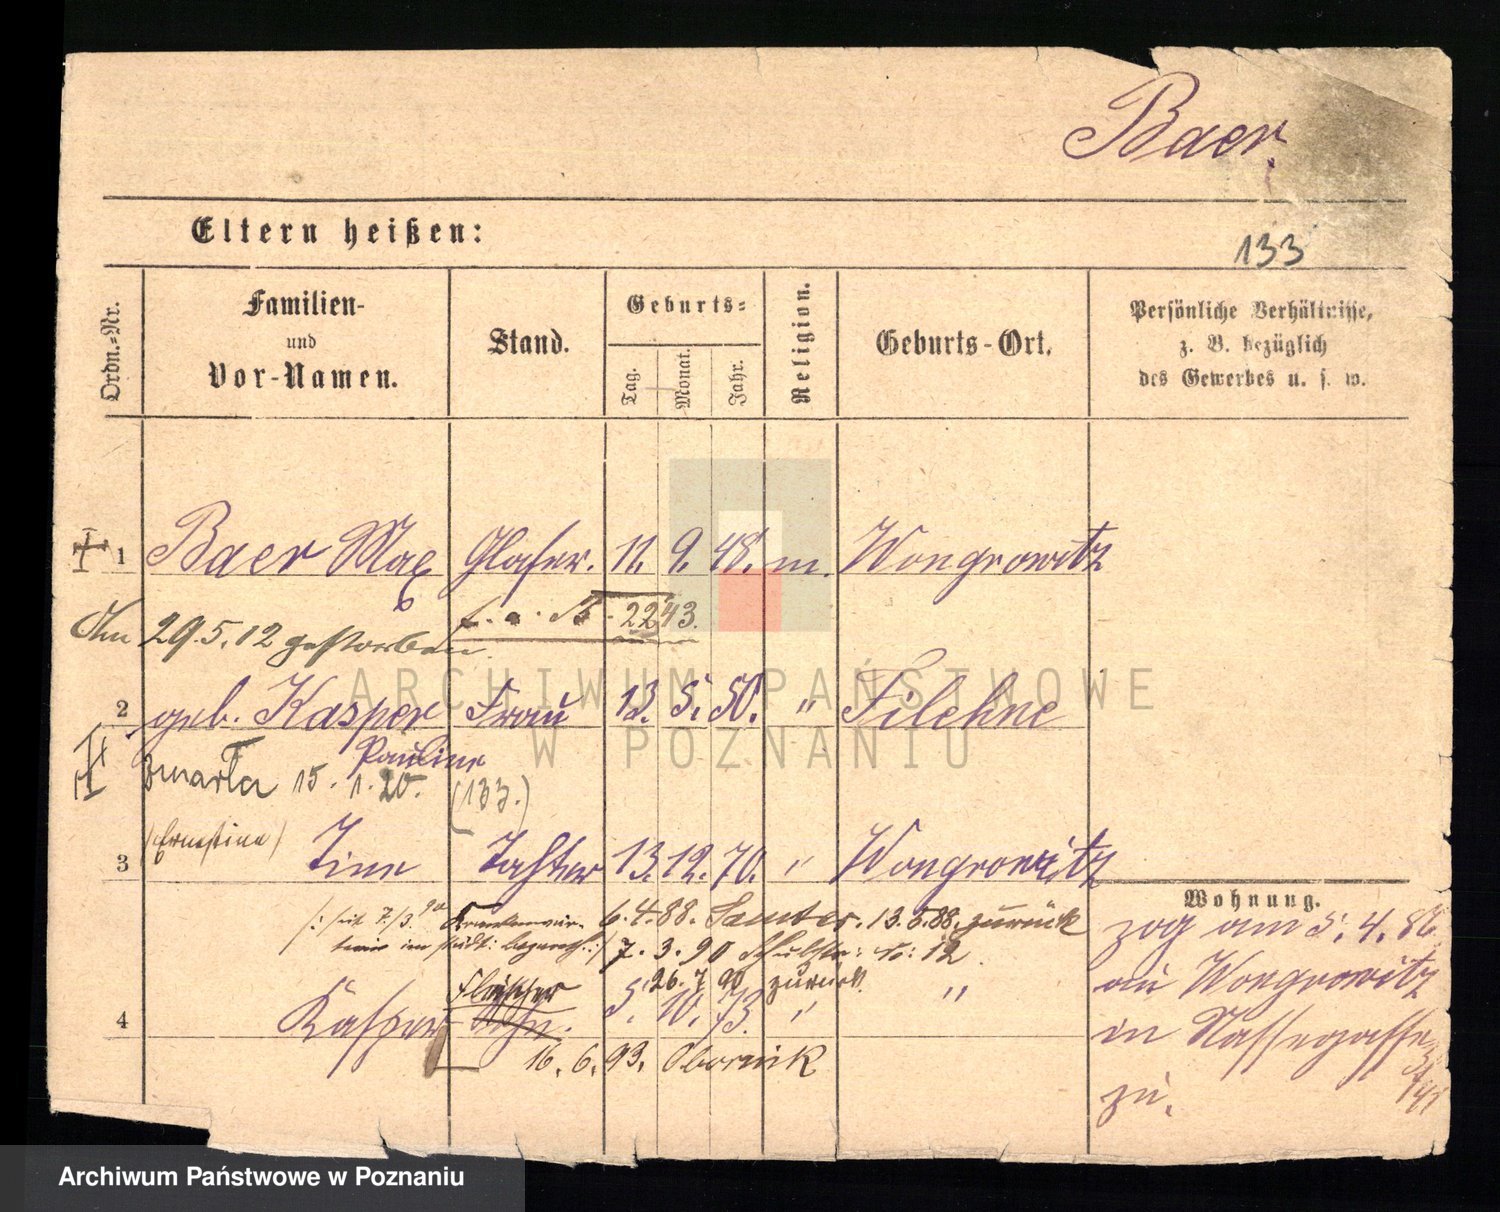 Baer
133
Eltern heißen:
Ordn.-Nr.
Familien-
und
Vor-Namen.
Stand.
Geburts-
Tag.
Monat.
Jahr.
Religion.
Geburts-Ort.
Persönliche Verhältnisse,
z. B. bezüglich
des Gewerbes u. s. w.
1 Baer Max Glaser. 11. 9. 48. m. Wongrowitz
29.5.12 gestorben
2243.
2 geb. Kasper Frau 13. 5. 50. " Filehne
Pauline
zmarła 15.1.20. (133.)
3 (Ernestine) Tine Tochter 13. 12. 70. " Wongrowitz
Wohnung.
/: seit 7./3. 90 6.4.88. Samter. 13.5.88. zurück
7.3.90 No: 12.
26.7.90 zurück.
4 Kasper Fleischer Sohn. 5. 10. 73. " "
16.6.93. Obornik
zog am 5.4.86
aus Wongrowitz
in Nassegasse
zu.
ARCHIWUM PAŃSTWOWE
W POZNANIU
Archiwum Państwowe w Poznaniu